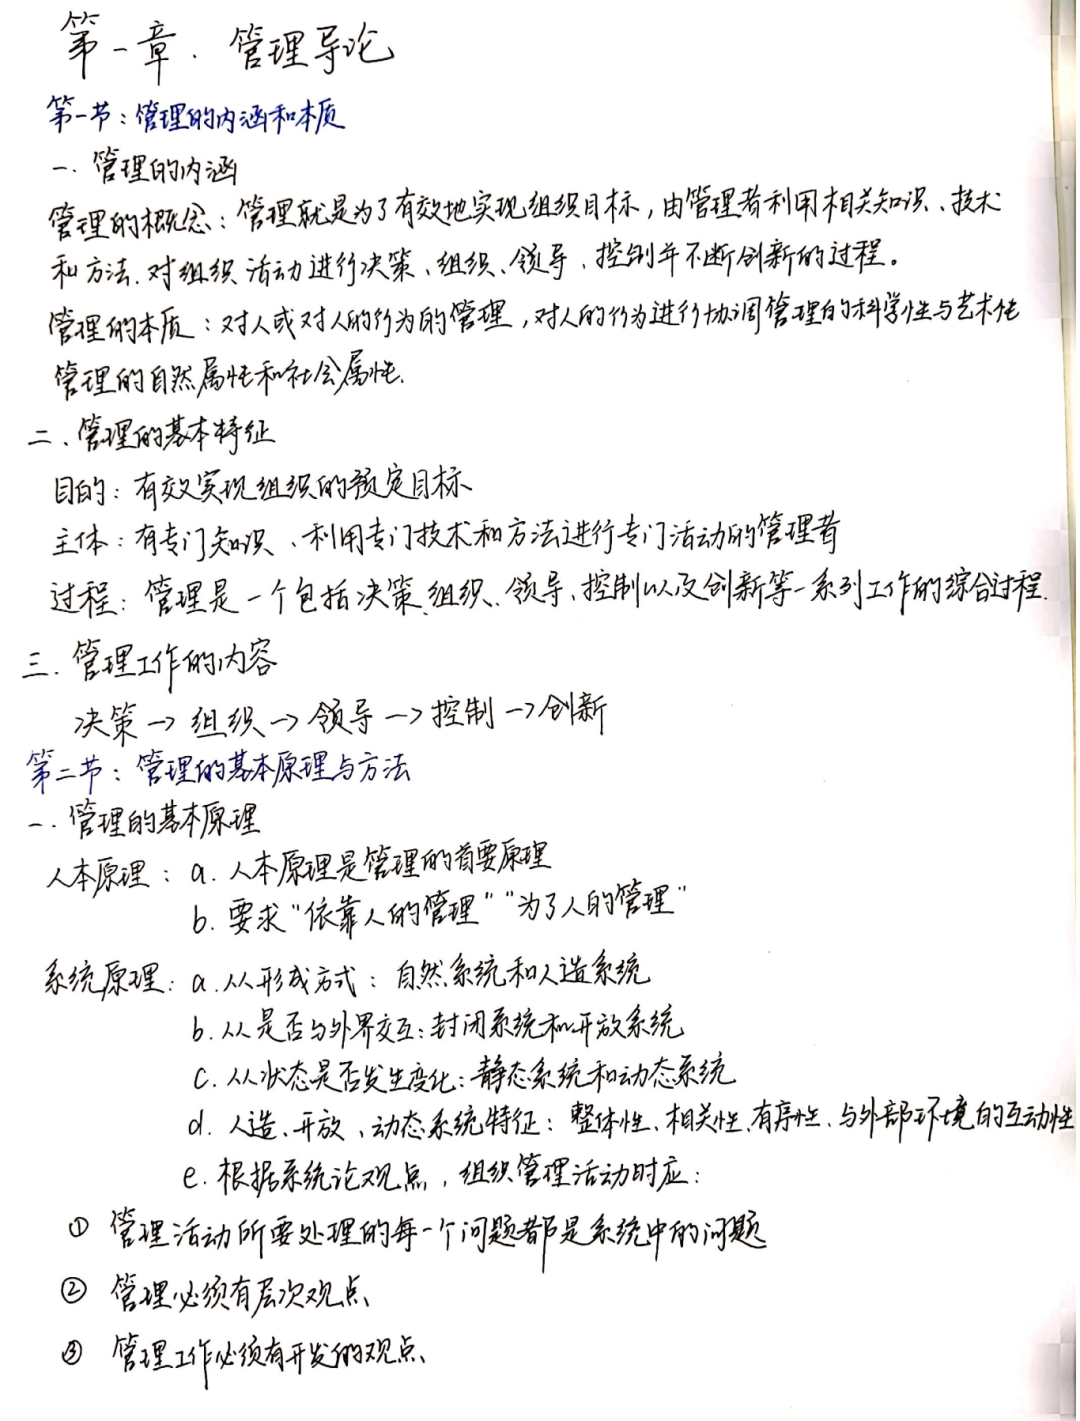 第一章. 管理导论
第一节：管理的内涵和本质
一. 管理的内涵
管理的概念：管理就是为了有效地实现组织目标，由管理者利用相关知识、技术
和方法.对组织活动进行决策、组织、领导、控制并不断创新的过程。
管理的本质：对人或对人的行为的管理，对人的行为进行协调管理的科学性与艺术性
管理的自然属性和社会属性.
二、管理的基本特征
目的：有效实现组织的预定目标
主体：有专门知识、利用专门技术和方法进行专门活动的管理者
过程：管理是一个包括决策、组织、领导、控制以及创新等一系列工作的综合过程.
三. 管理工作的内容
决策→组织→领导→控制→创新
第二节：管理的基本原理与方法
一. 管理的基本原理
人本原理：a. 人本原理是管理的首要原理
b. 要求“依靠人的管理”“为了人的管理”
系统原理：a. 从形成方式：自然系统和人造系统
b. 从是否与外界交互：封闭系统和开放系统
c. 从状态是否发生变化：静态系统和动态系统
d. 人造、开放、动态系统特征：整体性、相关性、有序性、与外部环境的互动性
e. 根据系统论观点，组织管理活动时应：
① 管理活动所要处理的每一个问题都是系统中的问题
② 管理必须有层次观点、
③ 管理工作必须有开发的观点、